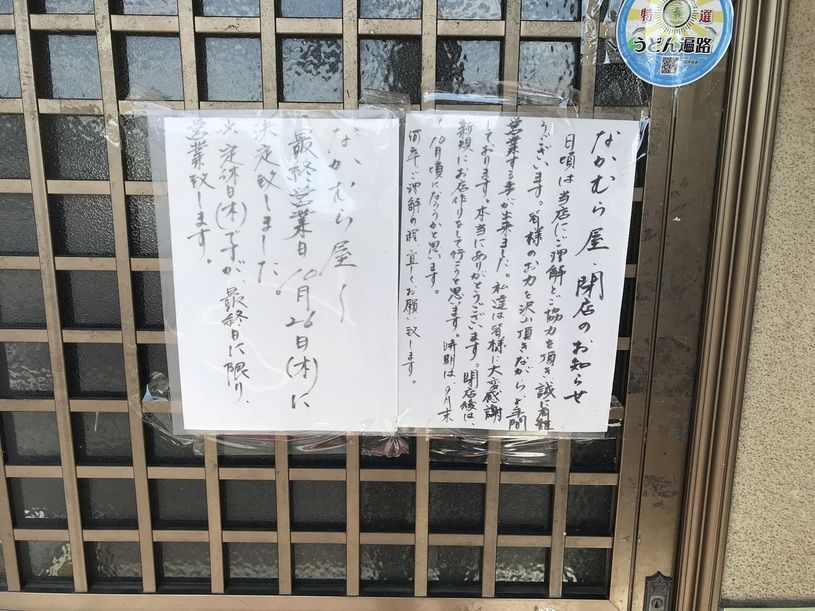 特選
うどん遍路
なかむら屋 閉店のお知らせ
日頃は当店にご理解とご協力を頂き誠に有難
うございます。皆様のお力を沢山頂きながら
営業する事が出来ました。私達は皆様に大変感謝
しております。本当にありがとうございます。閉店後は、
新規にお店作りをして行こうと思います。時期は9月末
〜10月頃になろうかと思います。
何卒ご理解の程宜しくお願い致します。
なかむら屋〜
最終営業日10月26日(木)に
決定致しました。
※定休日(木)ですが、最終日に限り、
営業致します。